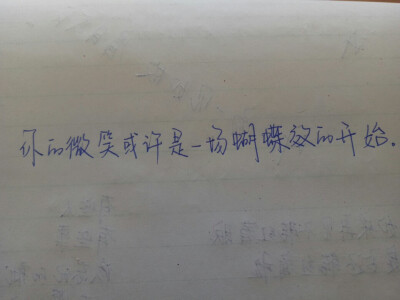 你的微笑或许是一场蝴蝶效的开始.